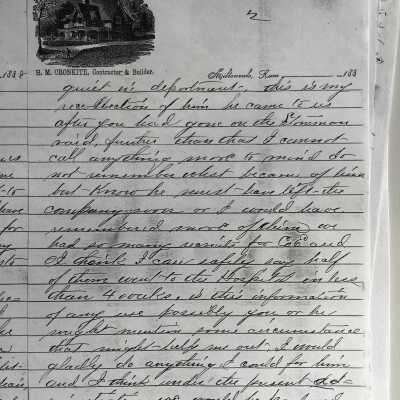 2
188
H. M. CRONKITE, Contractor & Builder.
Miltonvale, Kans. 188
quiet in deportment, this is my
recollection of him he came to us
after you had gone on the Stoneman
raid, further than that I cannot
call anything more to mind do
not remember what became of him
but know he must have left the
company soon or I would have
remembered more of him, we
had so many recruits for Co. and
I think I can safely say half
of them went to the Hospital in less
than 4 weeks, is this information
of any use possibly you or he
might mention some circumstance
that might help me out, I would
gladly do anything I could for him
and I think under the present Ad=
would be